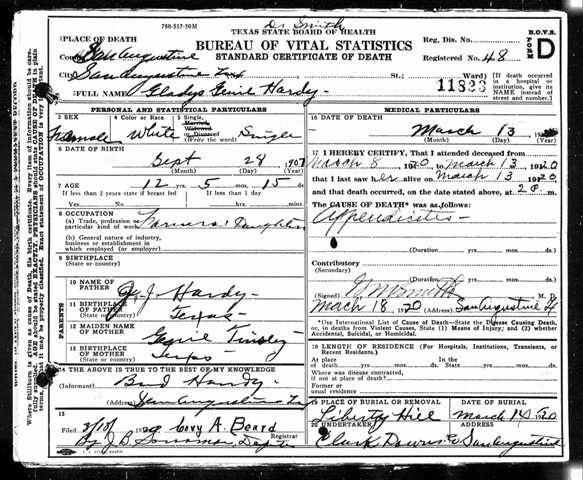 Dr Smith
780-517-50M
TEXAS STATE BOARD OF HEALTH
BUREAU OF VITAL STATISTICS
STANDARD CERTIFICATE OF DEATH
B.O.V.S.
FORM D
Reg. Dis. No.
Registered No. 48
1 PLACE OF DEATH
County San Augustine
City San Augustine Tex St.; Ward)
(If death occurred in a hospital or institution, give its NAME instead of street and number.)
11823
2 FULL NAME Gladys Genie Hardy
PERSONAL AND STATISTICAL PARTICULARS
3 SEX Female
4 Color or Race White
5 Single, Married, Widowed, or Divorced (Write the word) Single
6 DATE OF BIRTH
Sept 28 1907
(Month) (Day) (Year)
7 AGE 12 yrs. 5 mos. 15 ds.
If less than 2 years state if breast fed If less than 1 day
Yes No hrs. min.
8 OCCUPATION
(a) Trade, profession or particular kind of work Farmers Daughter
(b) General nature of industry, business or establishment in which employed (or employer)
9 BIRTHPLACE
(State or country)
PARENTS
10 NAME OF FATHER J. J. Hardy
11 BIRTHPLACE OF FATHER (State or country) Texas
12 MAIDEN NAME OF MOTHER Genie Tinsley
13 BIRTHPLACE OF MOTHER (State or country) Texas
14 THE ABOVE IS TRUE TO THE BEST OF MY KNOWLEDGE
(Informant) Hardy
(Address) San Augustine Tex
15
Filed 3/18/ 1920 A. Beard
By J. B. Registrar
MEDICAL PARTICULARS
16 DATE OF DEATH
March 13
(Month) (Day) (Year)
17 I HEREBY CERTIFY, That I attended deceased from
March 8 1920 to March 13 1920
that I last saw her alive on March 13 1920,
and that death occurred, on the date stated above, at m.
The CAUSE OF DEATH* was as follows:
Appendicitis
(Duration yrs. mos. ds.
Contributory
(Secondary)
(Duration) yrs. mos. ds.
(Signed) Smith M. D.
Mach 18, 1920 (Address) San Augustine
*Use International List of Cause of Death—State the Disease Causing Death, or, in deaths from Violent Causes, State (1) Means of Injury; and (2) whether Accidental, Suicidal, or Homicidal.
18 LENGTH OF RESIDENCE (For Hospitals, Institutions, Transients, or Recent Residents.)
At place of death yrs. mos. ds. In the State yrs. mos. ds.
Where was disease contracted, if not at place of Death?
Former or usual residence
19 PLACE OF BURIAL OR REMOVAL DATE OF BURIAL
Liberty Hill March 14 1920
20 UNDERTAKER ADDRESS
Clark Downs Co San Augustine